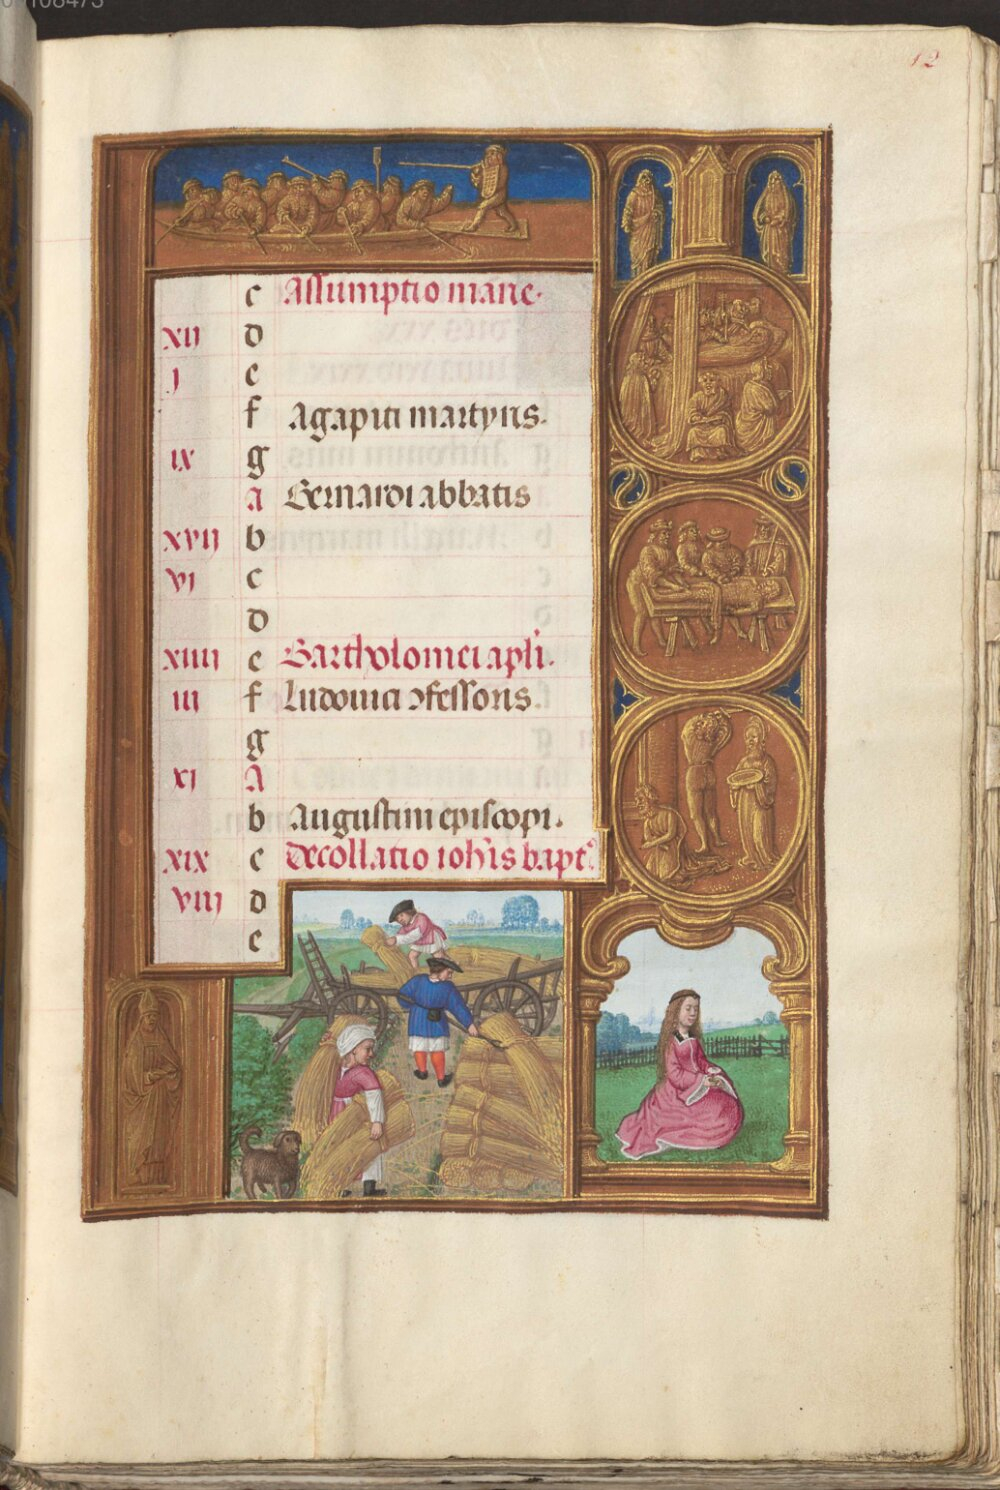 12
c Assumptio marie.
xij d
j e
f Agapiti martyris.
ix g
a Bernardi abbatis
xvij b
vj c
d
xiiij e Bartholomei apl̄i.
iij f Ludovici ɔfessoris.
g
xj A
b Augustini episcopi.
xix c Decollatio ioh̄is bapt
viij d
e